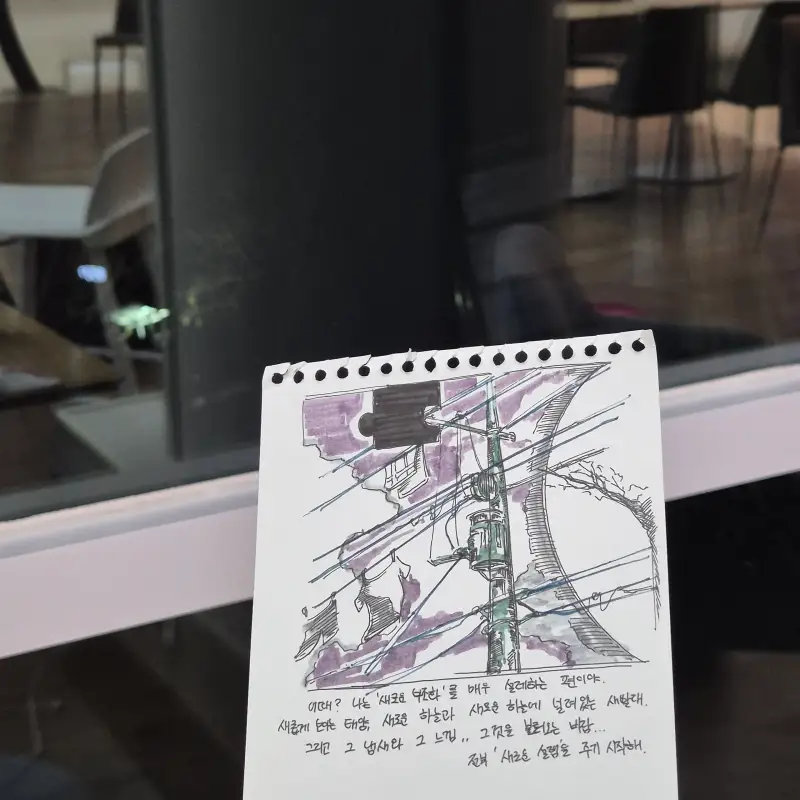 어때? 나는 '새로운 무언화'를 매우 설레하는 편이야.
새롭게 뜨는 태양, 새로운 하늘과 새로운 하늘에 널려있는 새빨래.
그리고 그 냄새와 그 느낌,, 그것을 불러오는 바람...
전부 '새로운 설렘'을 주기 시작해.